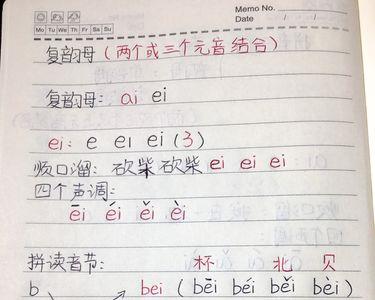 Memo No.
Mo Tu We Th Fr Sa Su
Date / /
复韵母(两个或三个元音结合)
复韵母: ai ei
ei: e eı ei (3)
顺口溜: 砍柴砍柴 ei ei ei
四个声调:
ēi éi ěi èi
拼读音节: 杯 北 贝
b bei (bēi béi běi bèi)